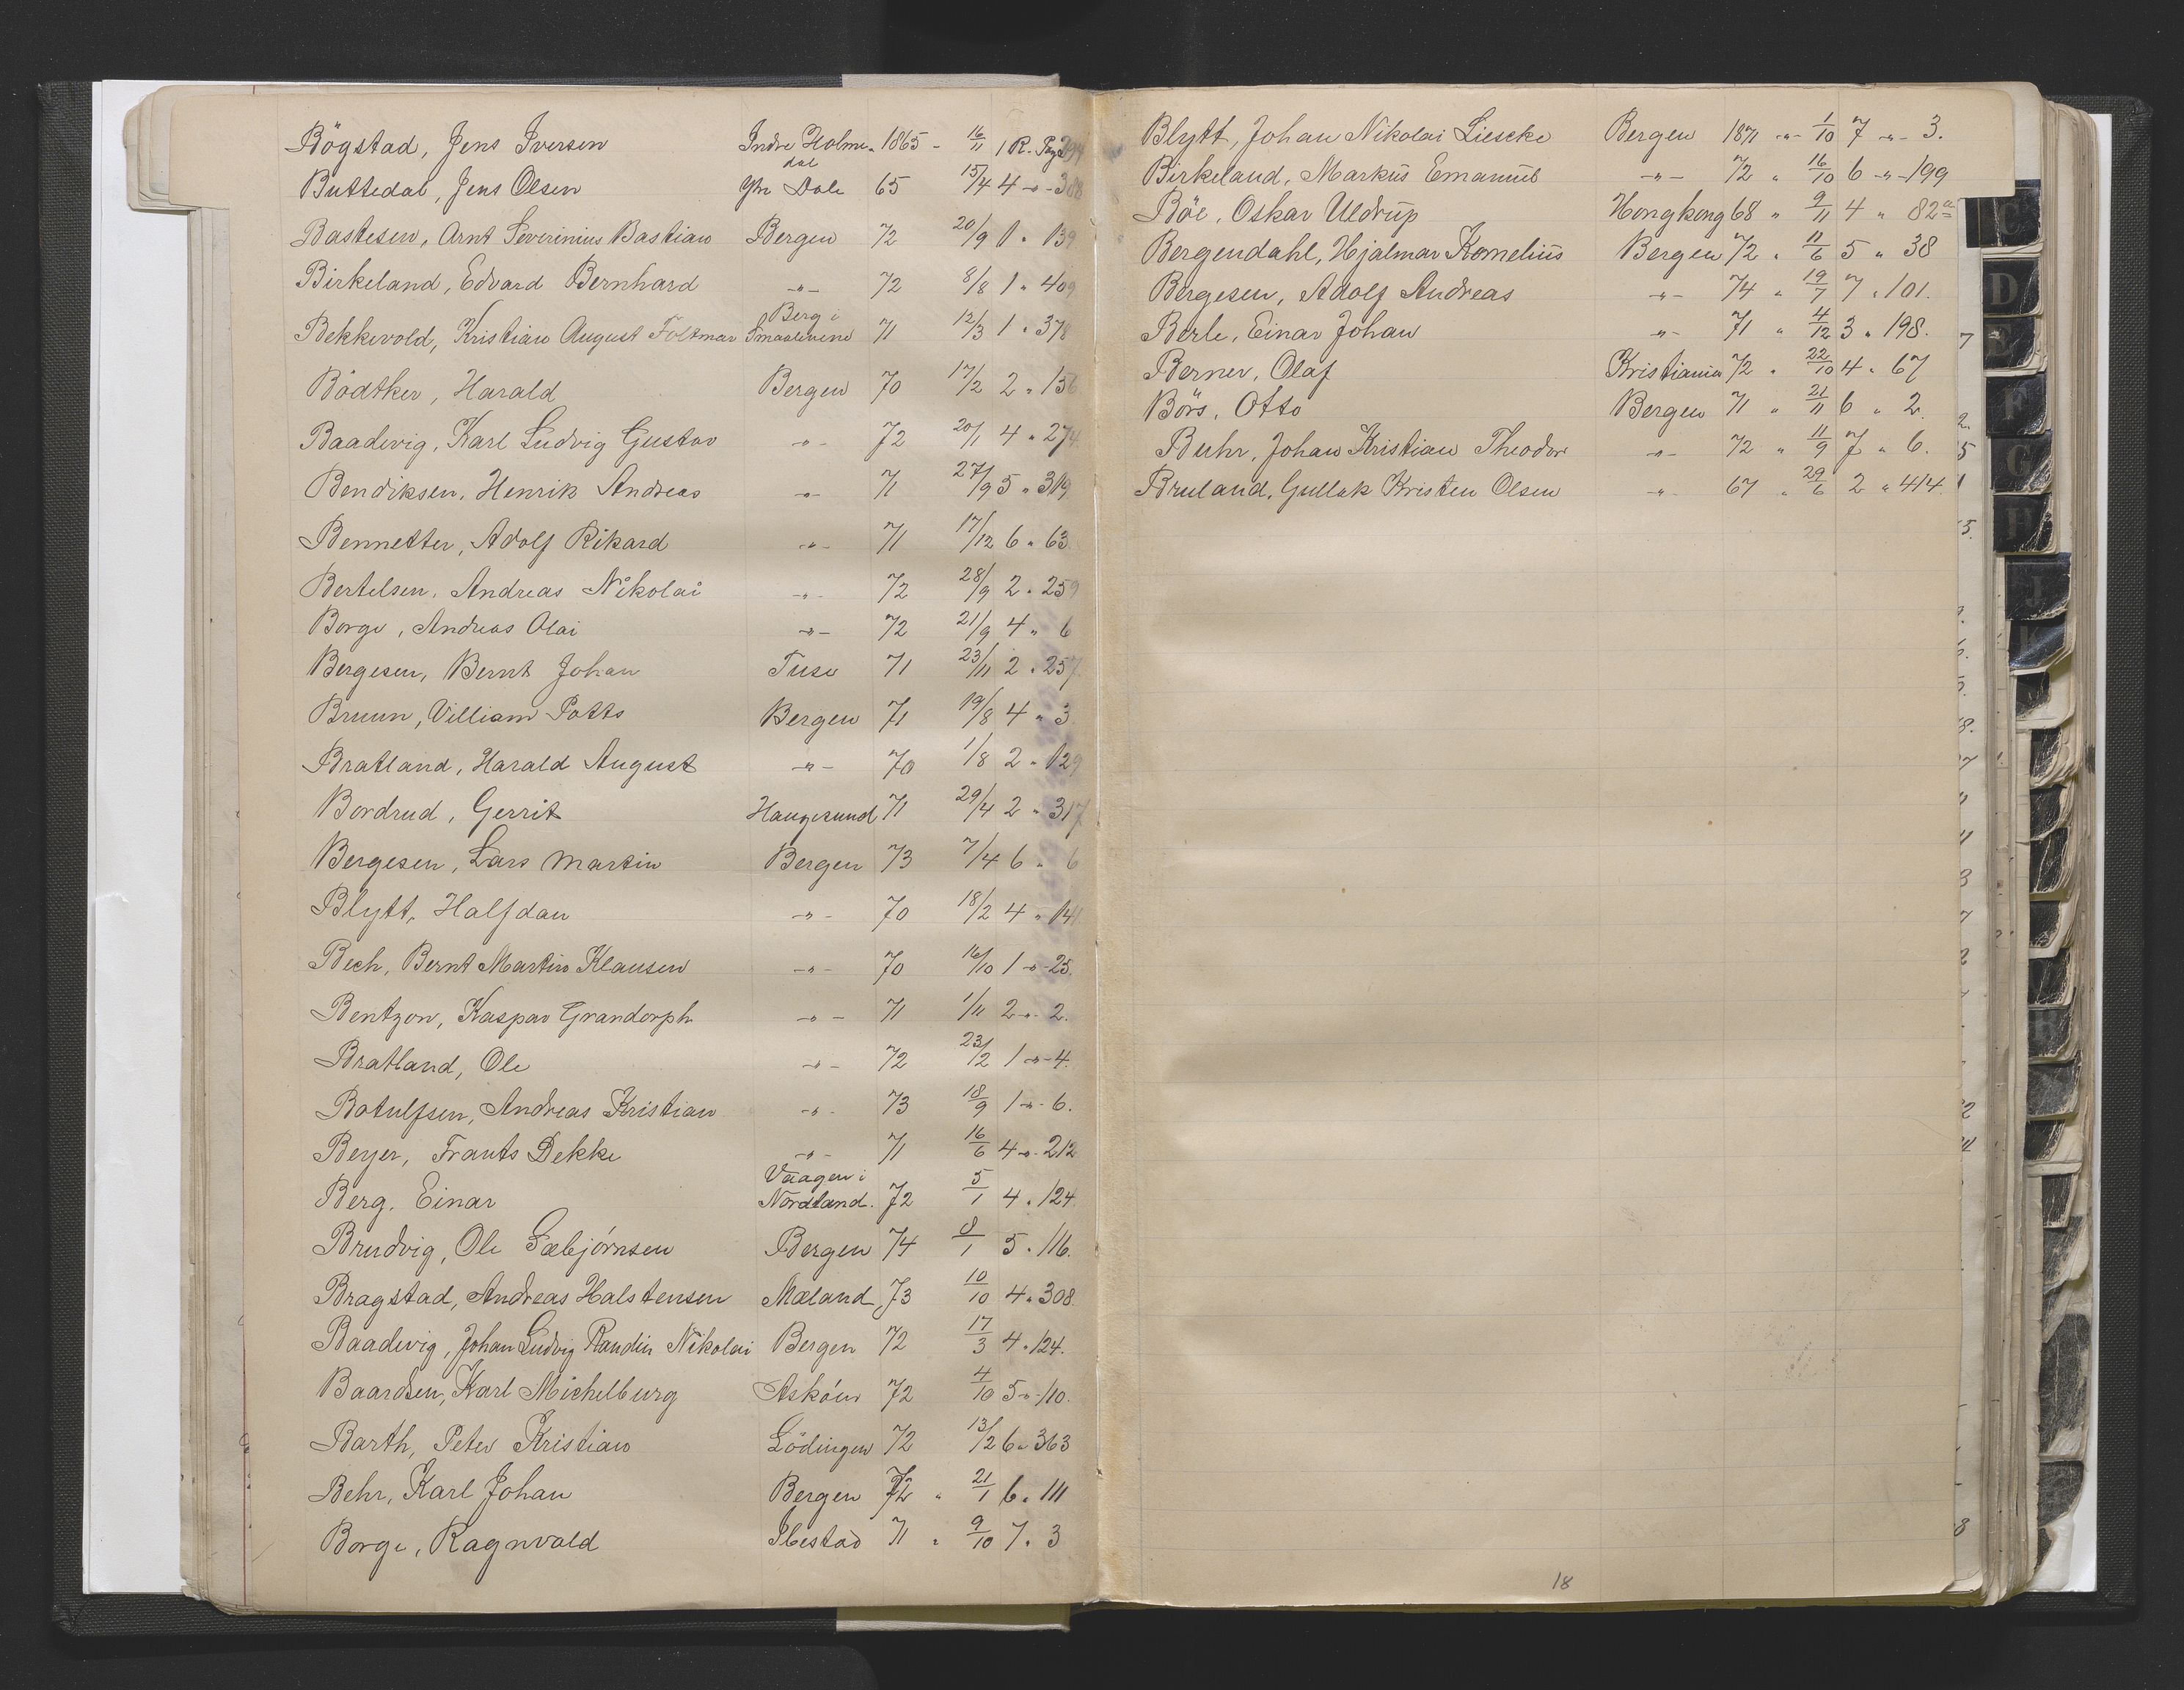 Bögstad, Jens Iversen Indre Holme- 1865 - 16/11 1 R. Pag 294
dal
Buttedal, Jens Olsen Ytre Dale 65 15/4 4 -"- 388
Bastesen, Arnt Severinius Bastian Bergen 72 20/9 1 " 139
Birkeland, Edvard Bernhard -"- 72 8/8 1 " 409
Berg i
Bekkevold, Kristian August Foltmar Smaalenene 71 12/3 1 " 378
Bödtker, Harald Bergen 70 17/2 2 " 156
Baadevig, Karl Ludvig Gustav -"- 72 20/1 4 " 274
Bendiksen, Henrik Andreas -"- 71 27/9 5 " 319
Bennetter, Adolf Rikard -"- 71 17/12 6 " 63
Bertelsen, Andreas Nikolai -"- 72 28/9 2 " 259
Borge, Andreas Olai -"- 72 21/9 4 " 6
Bergesen, Bernt Johan Fuse 71 23/11 2 " 257
Bruun, Villiam Potts Bergen 71 19/8 4 " 3
Bratland, Harald August -"- 70 1/8 2 " 129
Bordrud, Gerrit Haugesund 71 29/4 2 " 317
Bergesen, Lars Martin Bergen 73 7/4 6 " 6
Blytt, Halfdan -"- 70 18/2 4 " 141
Bech, Bernt Martin Klausen -"- 70 16/10 1 -"- 25.
Bentzon, Kaspar Grandorph -"- 71 1/11 2 -"- 2.
Bratland, Ole -"- 72 23/2 1 -"- 4.
Botulfsen, Andreas Kristian -"- 73 18/9 1 -"- 6.
Beyer, Frants Dekke -"- 71 16/6 4 -"- 212
Vaagen i
Berg, Einar Nordland. 72 5/1 4 " 124
Brudvig, Ole Sæbjörnsen Bergen 74 8/1 5 " 116.
Bragstad, Andreas Halstensen Mæland 73 10/10 4 " 308.
Baadevig, Johan Ludvig Randin Nikolai Bergen 72 17/3 4 " 124.
Baardsen, Karl Michelburg Asköen 72 4/10 5 -"- 110.
Barth, Peter Kristian Lödingen 72 13/2 6 " 363
Behr, Karl Johan Bergen 72 " 21/1 6 " 111
Borge, Ragnvald Ibestad 71 " 9/10 7 " 3
Blytt, Johan Nikolai Liescke Bergen 1871 -"- 1/10 7 -"- 3.
Birkeland, Markus Emanuel -"- 72 " 16/10 6 -"- 199
Böe, Oskar Uldrup Hongkong 68 " 9/11 4 " 82a
Bergendahl, Hjalmar Kornelius Bergen 72 " 11/6 5 " 38
Bergesen, Adolf Andreas -"- 74 " 19/7 7 " 101.
Berle, Einar Johan -"- 71 " 4/12 3 " 198.
Berner, Olaf Kristiania 72 " 22/10 4 " 67
Börs, Otto Bergen 71 " 21/11 6 " 2.
Buhr, Johan Kristian Theodor -"- 72 " 11/9 7 " 6.
Bruland, Gullak Kristen Olsen -"- 67 " 29/6 2 " 414.
18
C
D
E
F
G
H
J
K